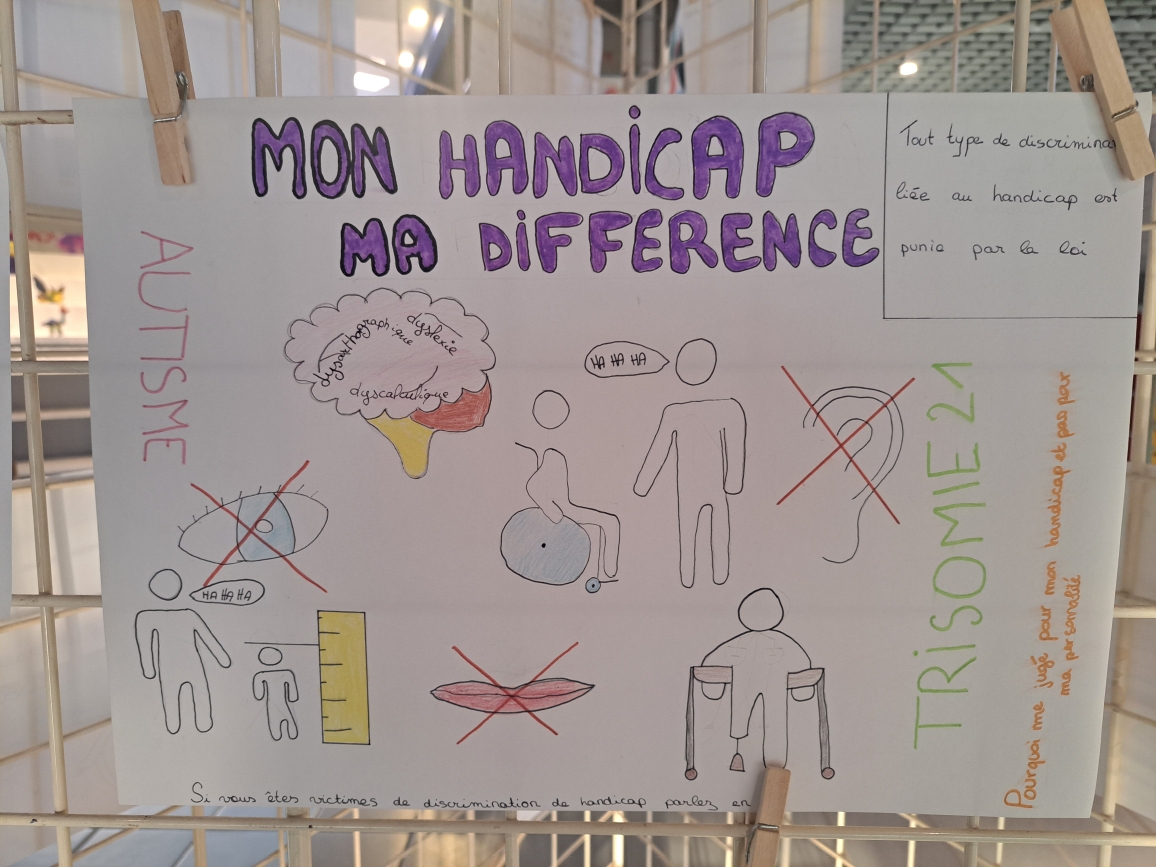 MON HANDiCAP
MA DiFFERENCE
Tout type de discrimina
liée au handicap est
punie par la loi
AUTISME
dysorthographique
dyslexie
dyscalculique
HA HA HA
HA HA HA
TRiSOMIE 21
Pourquoi me jugé pour mon handicap et pas pour
ma personalité
Si vous êtes victimes de discrimination de handicap parlez en